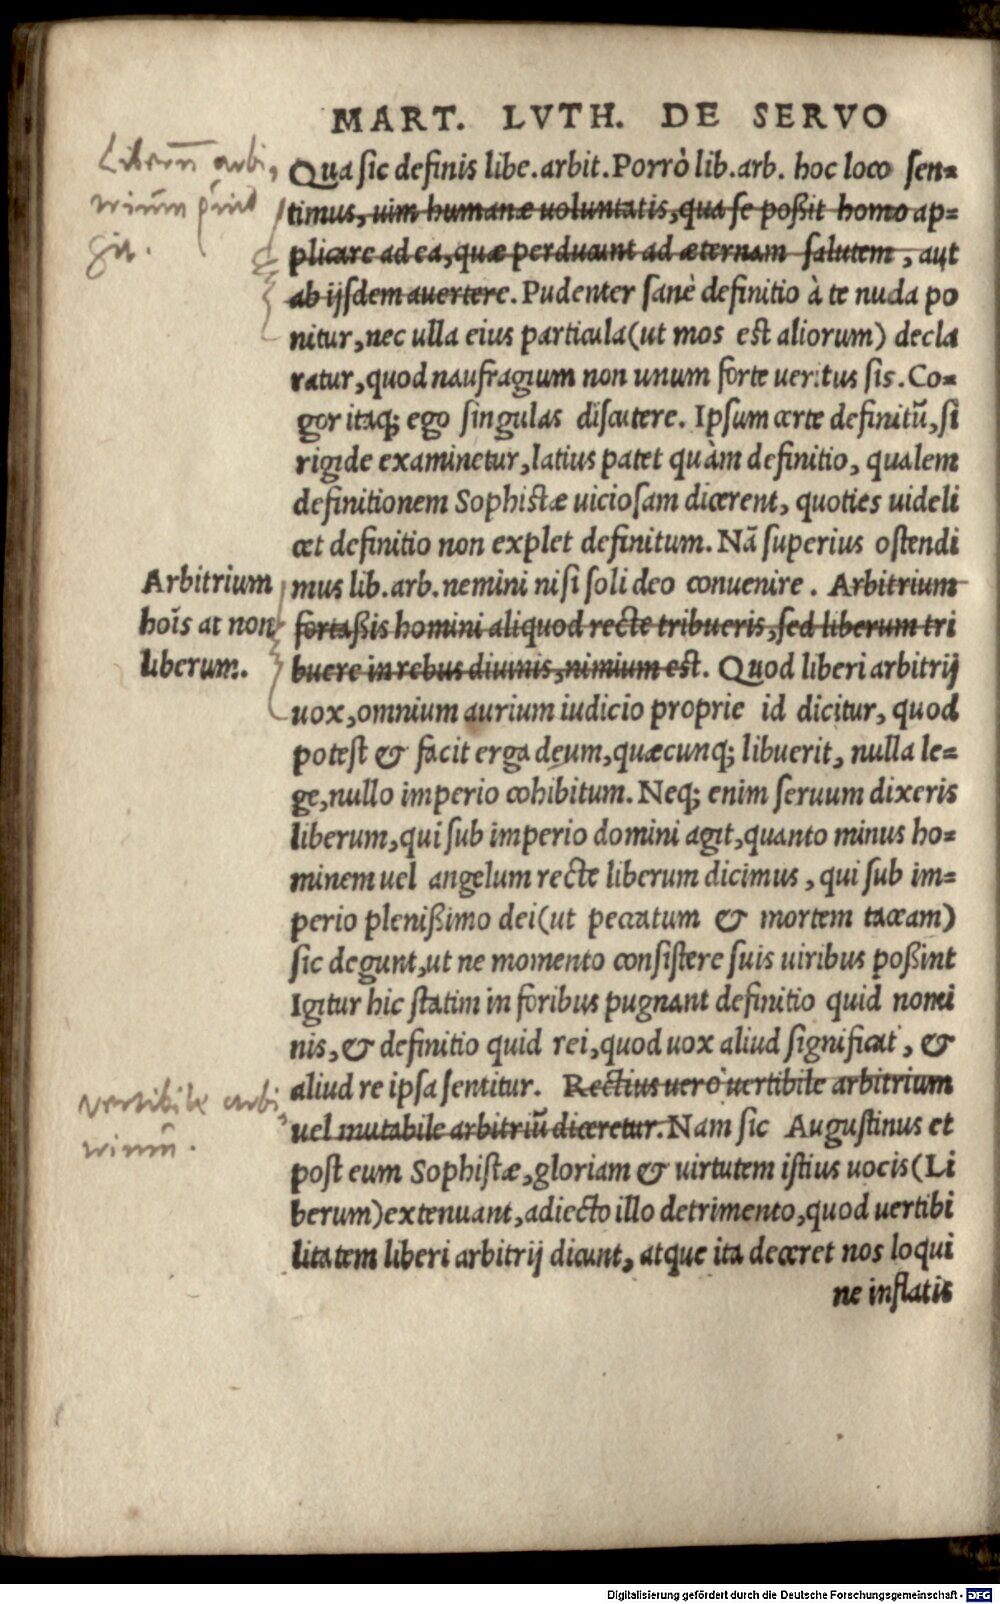 MART. LVTH. DE SERVO
Liberũ arbi,
trium quid
sit.
Qua sic definis libe.arbit.Porrò lib.arb. hoc loco sen=
timus, uim humanæ uoluntatis, qua se poßit homo ap=
plicare ad ea, quæ perducunt ad æternam salutem, aut
ab ijsdem auertere. Pudenter sanè definitio à te nuda po
nitur, nec ulla eius particula (ut mos est aliorum) decla
ratur, quod naufragium non unum forte ueritus sis. Co=
gor itaq; ego singulas discutere. Ipsum certe definitũ, si
rigide examinetur, latius patet quàm definitio, qualem
definitionem Sophistæ uiciosam dicerent, quoties uideli
cet definitio non explet definitum. Nã superius ostendi
mus lib.arb. nemini nisi soli deo conuenire. Arbitrium
Arbitrium
hoĩs at non
liberum.
fortaßis homini aliquod recte tribueris, sed liberum tri
buere in rebus diuinis, nimium est. Quod liberi arbitrij
uox, omnium aurium iudicio proprie id dicitur, quod
potest & facit erga deum, quæcunq; libuerit, nulla le=
ge, nullo imperio cohibitum. Neq; enim seruum dixeris
liberum, qui sub imperio domini agit, quanto minus ho=
minem uel angelum recte liberum dicimus, qui sub im=
perio plenißimo dei (ut peccatum & mortem taceam)
sic degunt, ut ne momento consistere suis uiribus poßint
Igitur hic statim in foribus pugnant definitio quid nomi
nis, & definitio quid rei, quod uox aliud significat, &
aliud re ipsa sentitur. Rectius uero uertibile arbitrium
vertibile arbi
trium.
uel mutabile arbitriũ diceretur. Nam sic Augustinus et
post eum Sophistæ, gloriam & uirtutem istius uocis (Li
berum) extenuant, adiecto illo detrimento, quod uertibi
litatem liberi arbitrij dicunt, atque ita deceret nos loqui
ne inflatis
Digitalisierung gefördert durch die Deutsche Forschungsgemeinschaft - DFG